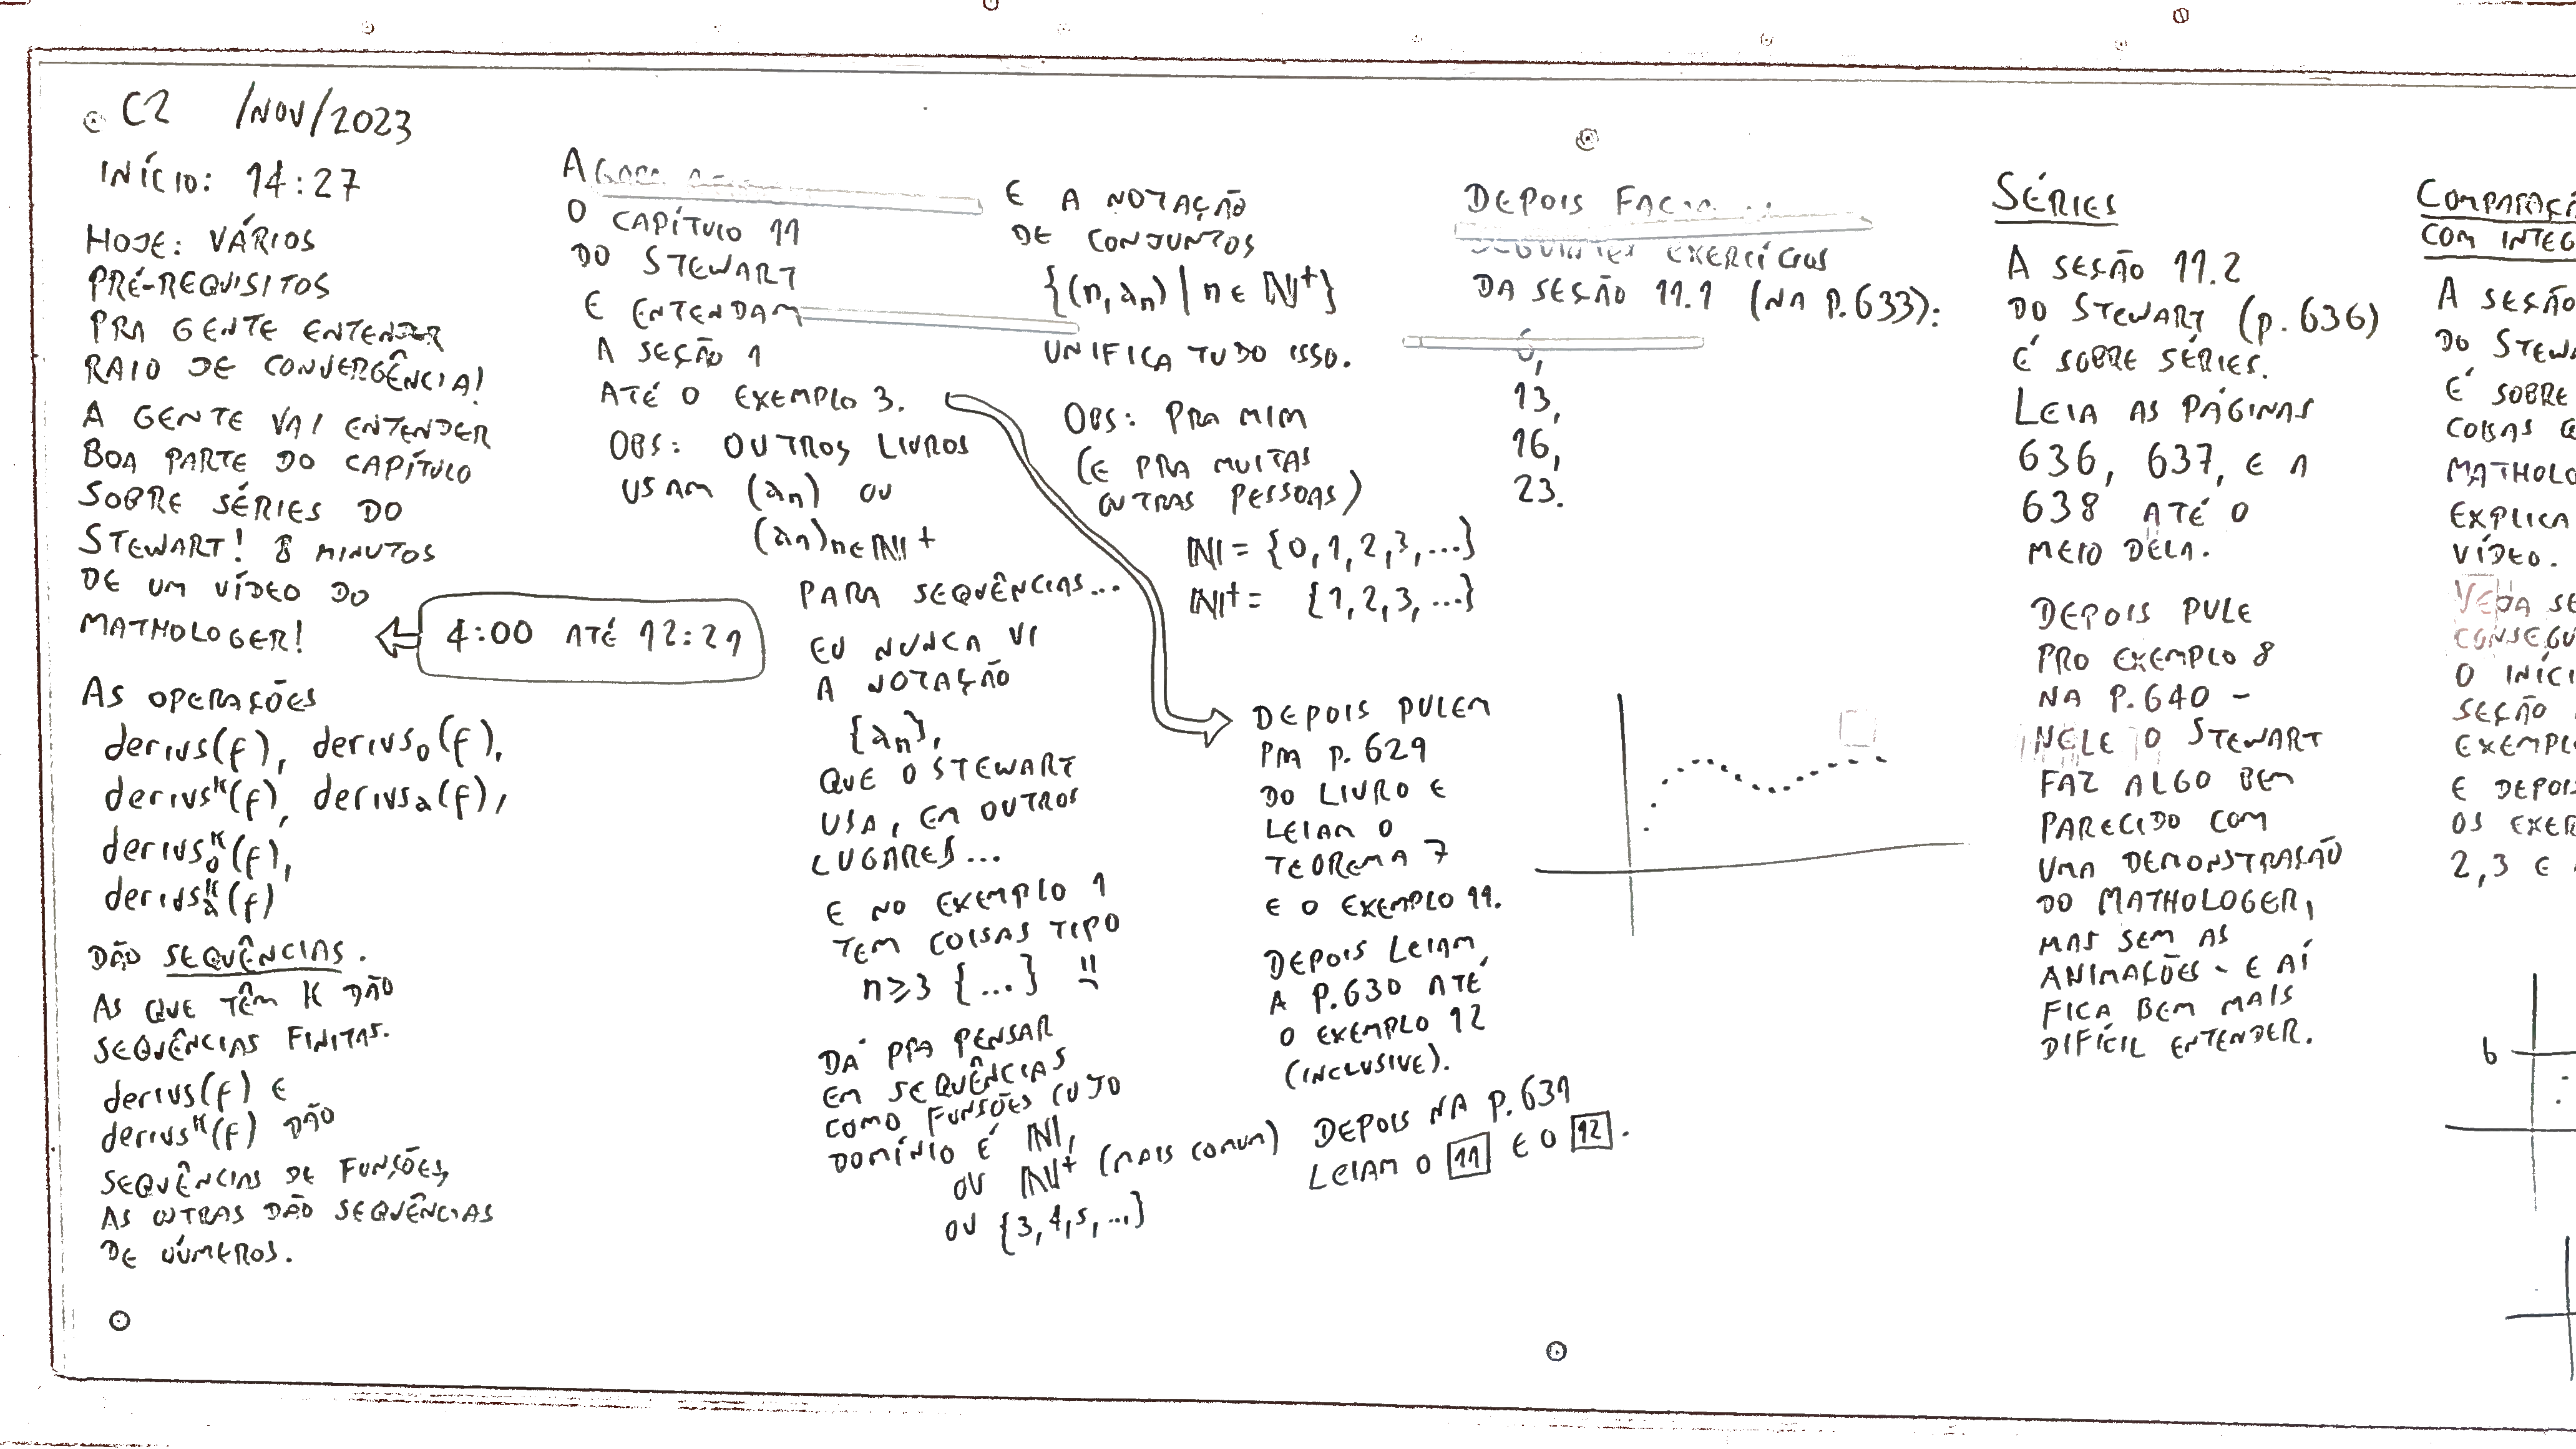 C2 /NOV/2023
INÍCIO: 14:27
HOJE: VÁRIOS
PRÉ-REQUISITOS
PRA GENTE ENTENDER
RAIO DE CONVERGÊNCIA!
A GENTE VAI ENTENDER
BOA PARTE DO CAPÍTULO
SOBRE SÉRIES DO
STEWART! 8 MINUTOS
DE UM VÍDEO DO
MATHOLOGER!
4:00 ATÉ 12:21
AS OPERAÇÕES
derivs(f), derivs₀(f),
derivsᴷ(f), derivsₐ(f),
derivs₀ᴷ(f),
derivsₐᴷ(f)
DÃO SEQUÊNCIAS.
AS QUE TÊM K DÃO
SEQUÊNCIAS FINITAS.
derivs(f) E
derivsᴷ(f) DÃO
SEQUÊNCIAS DE FUNÇÕES,
AS OUTRAS DÃO SEQUÊNCIAS
DE NÚMEROS.
AGORA
O CAPÍTULO 11
DO STEWART
E ENTENDAM
A SEÇÃO 1
ATÉ O EXEMPLO 3.
OBS: OUTROS LIVROS
USAM (aₙ) OU
(aₙ)n∈ℕ⁺
PARA SEQUÊNCIAS...
EU NUNCA VI
A NOTAÇÃO
{aₙ},
QUE O STEWART
USA, EM OUTROS
LUGARES...
E NO EXEMPLO 1
TEM COISAS TIPO
n≥3 {...}
DÁ PRA PENSAR
EM SEQUÊNCIAS
COMO FUNÇÕES CUJO
DOMÍNIO É ℕ,
OU ℕ⁺ (MAIS COMUM)
OU {3,4,5,...}
E A NOTAÇÃO
DE CONJUNTOS
{(n,aₙ) | n∈ℕ⁺}
UNIFICA TUDO ISSO.
OBS: PRA MIM
(E PRA MUITAS
OUTRAS PESSOAS)
ℕ = {0,1,2,3,...}
ℕ⁺ = {1,2,3,...}
DEPOIS PULEM
PRA P. 629
DO LIVRO E
LEIAM O
TEOREMA 7
E O EXEMPLO 11.
DEPOIS LEIAM
A P.630 ATÉ
O EXEMPLO 12
(INCLUSIVE).
DEPOIS NA P. 631
LEIAM O 11 E O 12.
DEPOIS
EXERCÍCIOS
DA SEÇÃO 11.1 (NA P.633):
13,
16,
23.
SÉRIES
A SEÇÃO 11.2
DO STEWART (p. 636)
É SOBRE SÉRIES.
LEIA AS PÁGINAS
636, 637, E A
638 ATÉ O
MEIO DELA.
DEPOIS PULE
PRO EXEMPLO 8
NA P. 640 –
NELE O STEWART
FAZ ALGO BEM
PARECIDO COM
UMA DEMONSTRAÇÃO
DO MATHOLOGER,
MAS SEM AS
ANIMAÇÕES - E AÍ
FICA BEM MAIS
DIFÍCIL ENTENDER.
A SEÇÃO
DO
É SOBRE
COISAS
EXPLICA
VÍDEO.
VEJA
O
SEÇÃO
E
OS
2,3 E
b